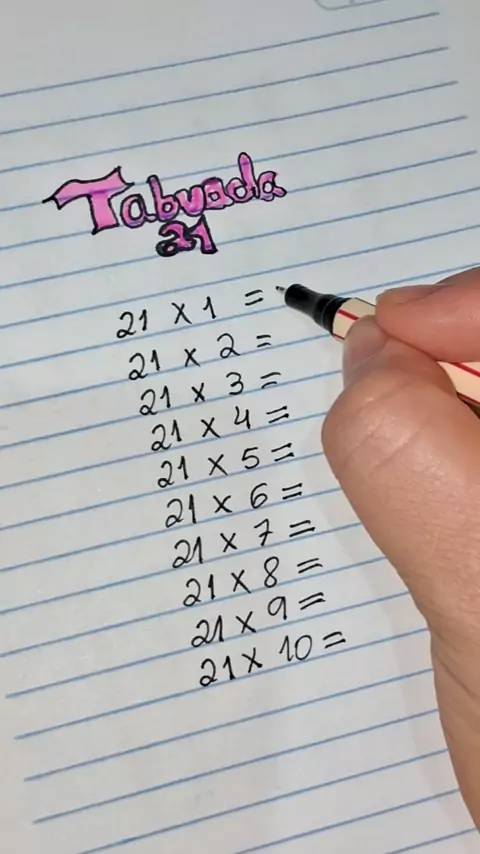 Tabuada
21
21 x 1 =
21 x 2 =
21 x 3 =
21 x 4 =
21 x 5 =
21 x 6 =
21 x 7 =
21 x 8 =
21 x 9 =
21 x 10 =